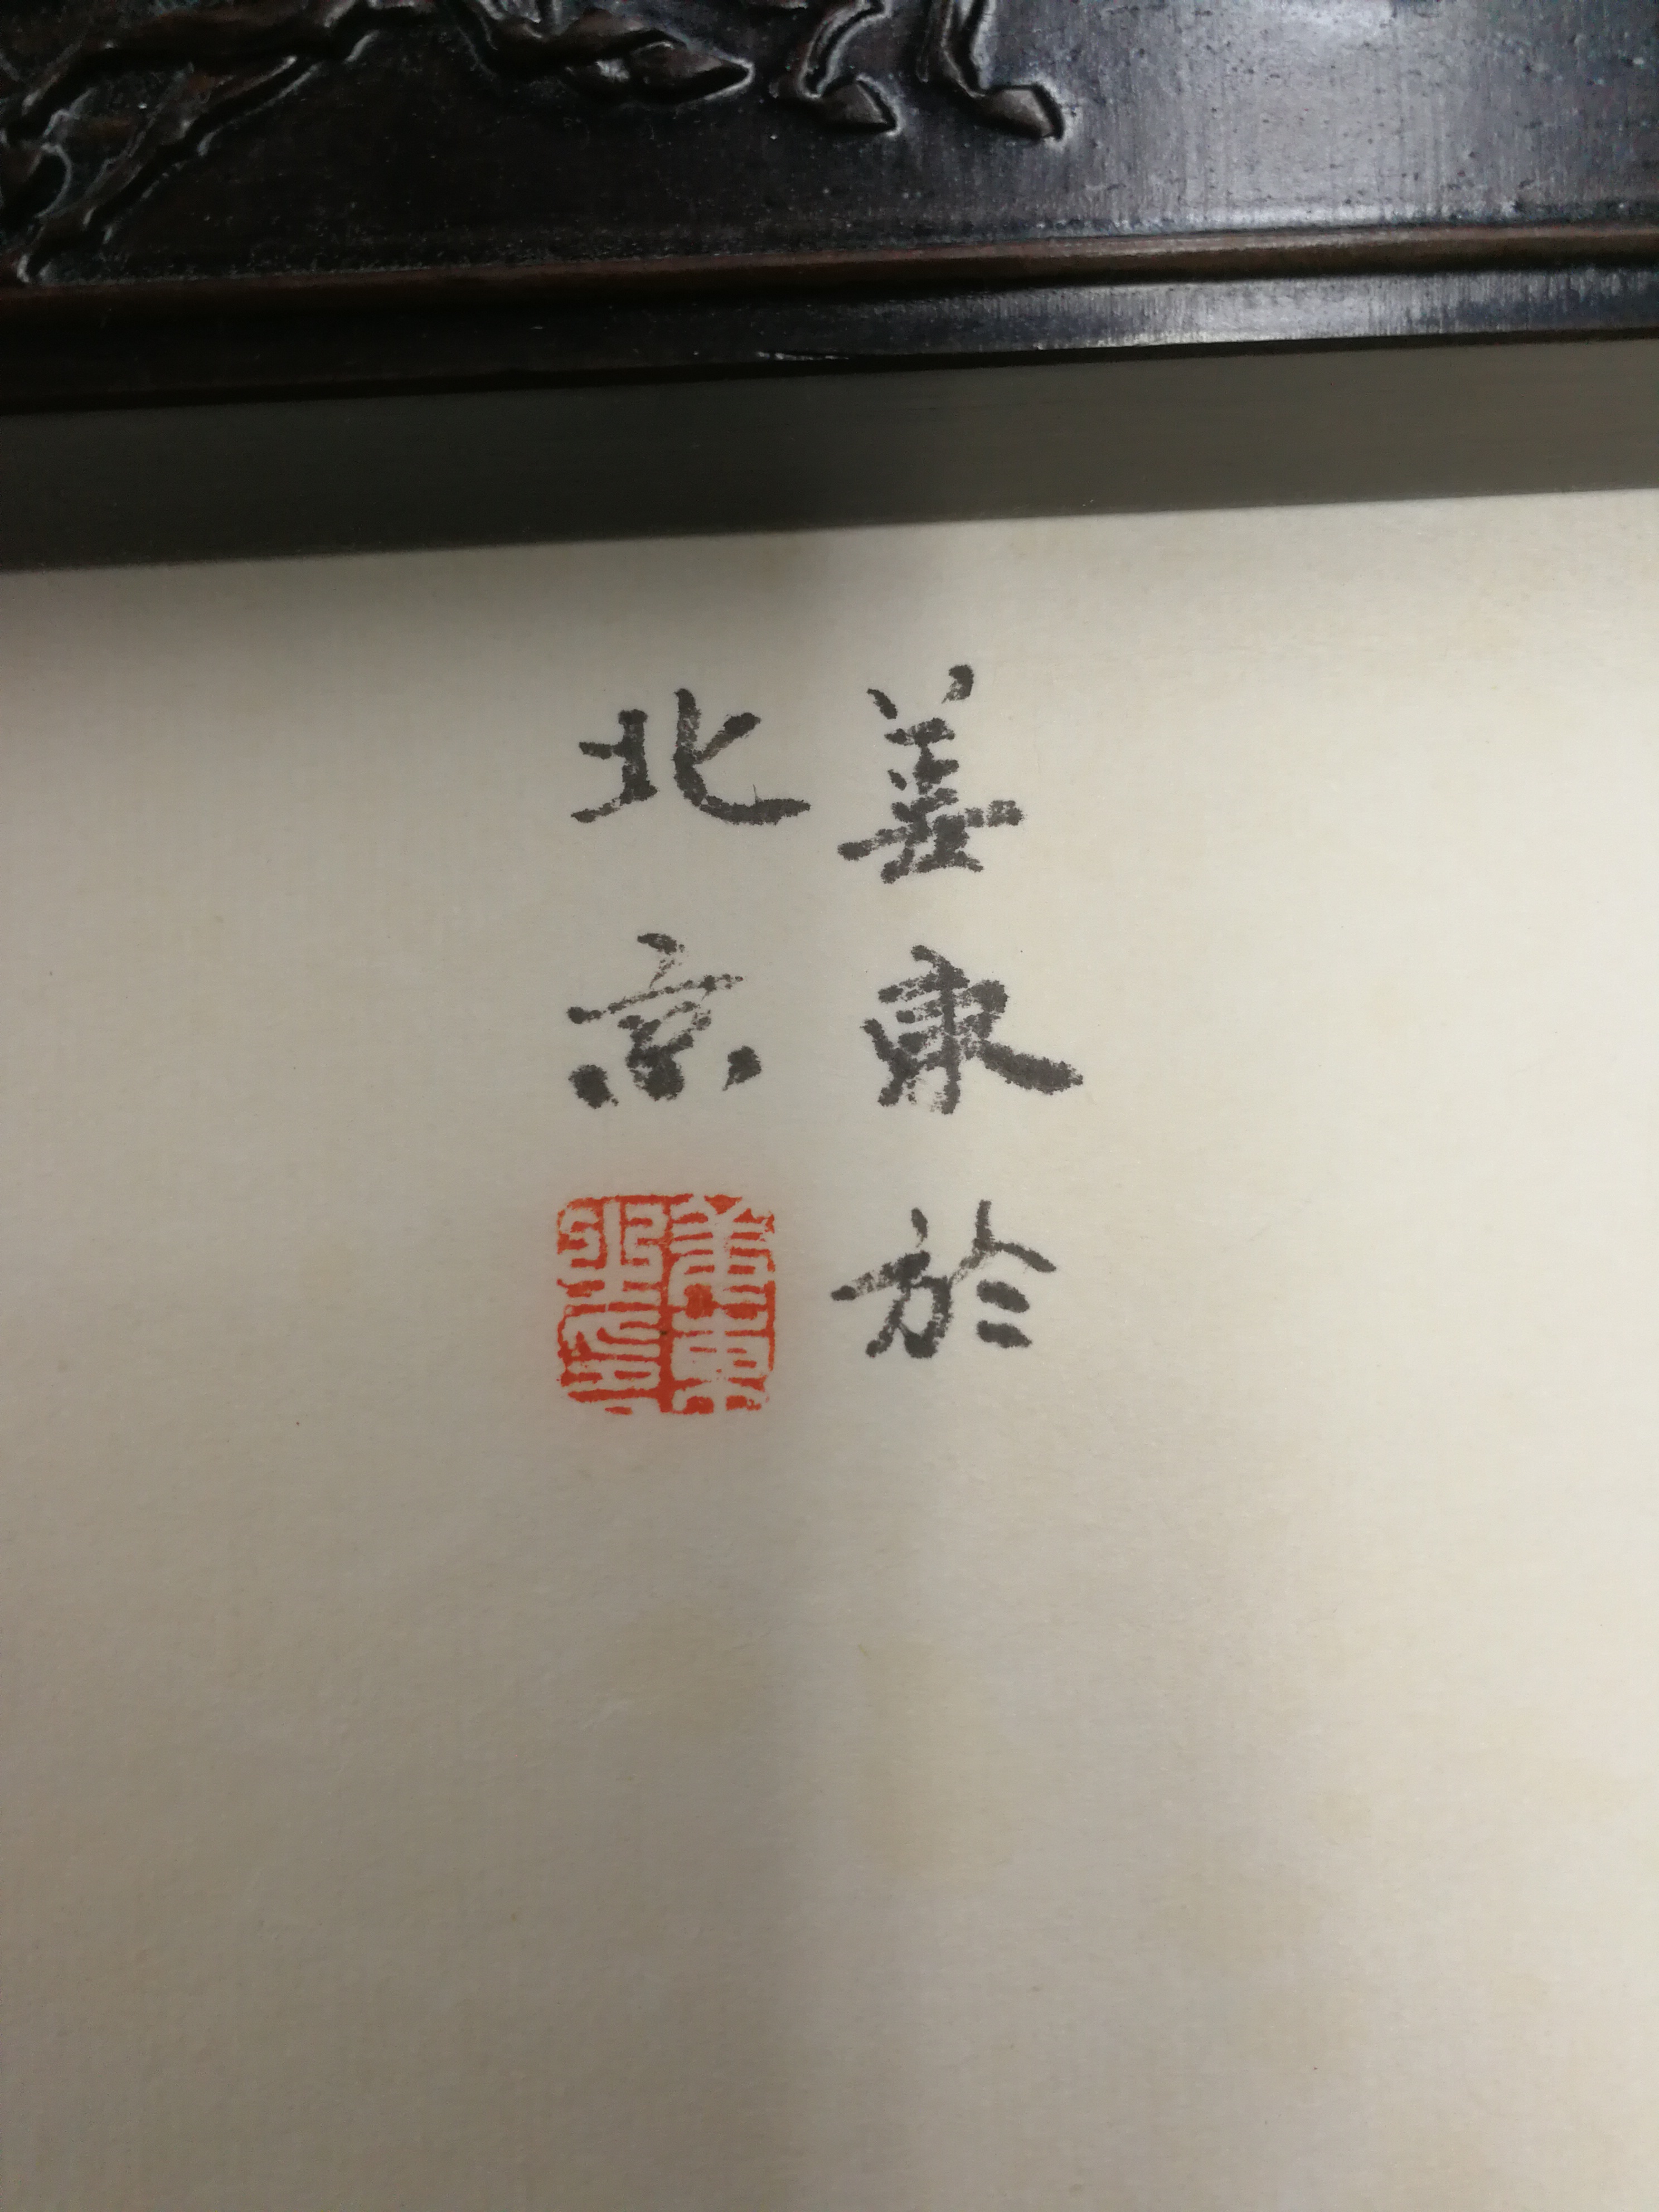 善東於
北京